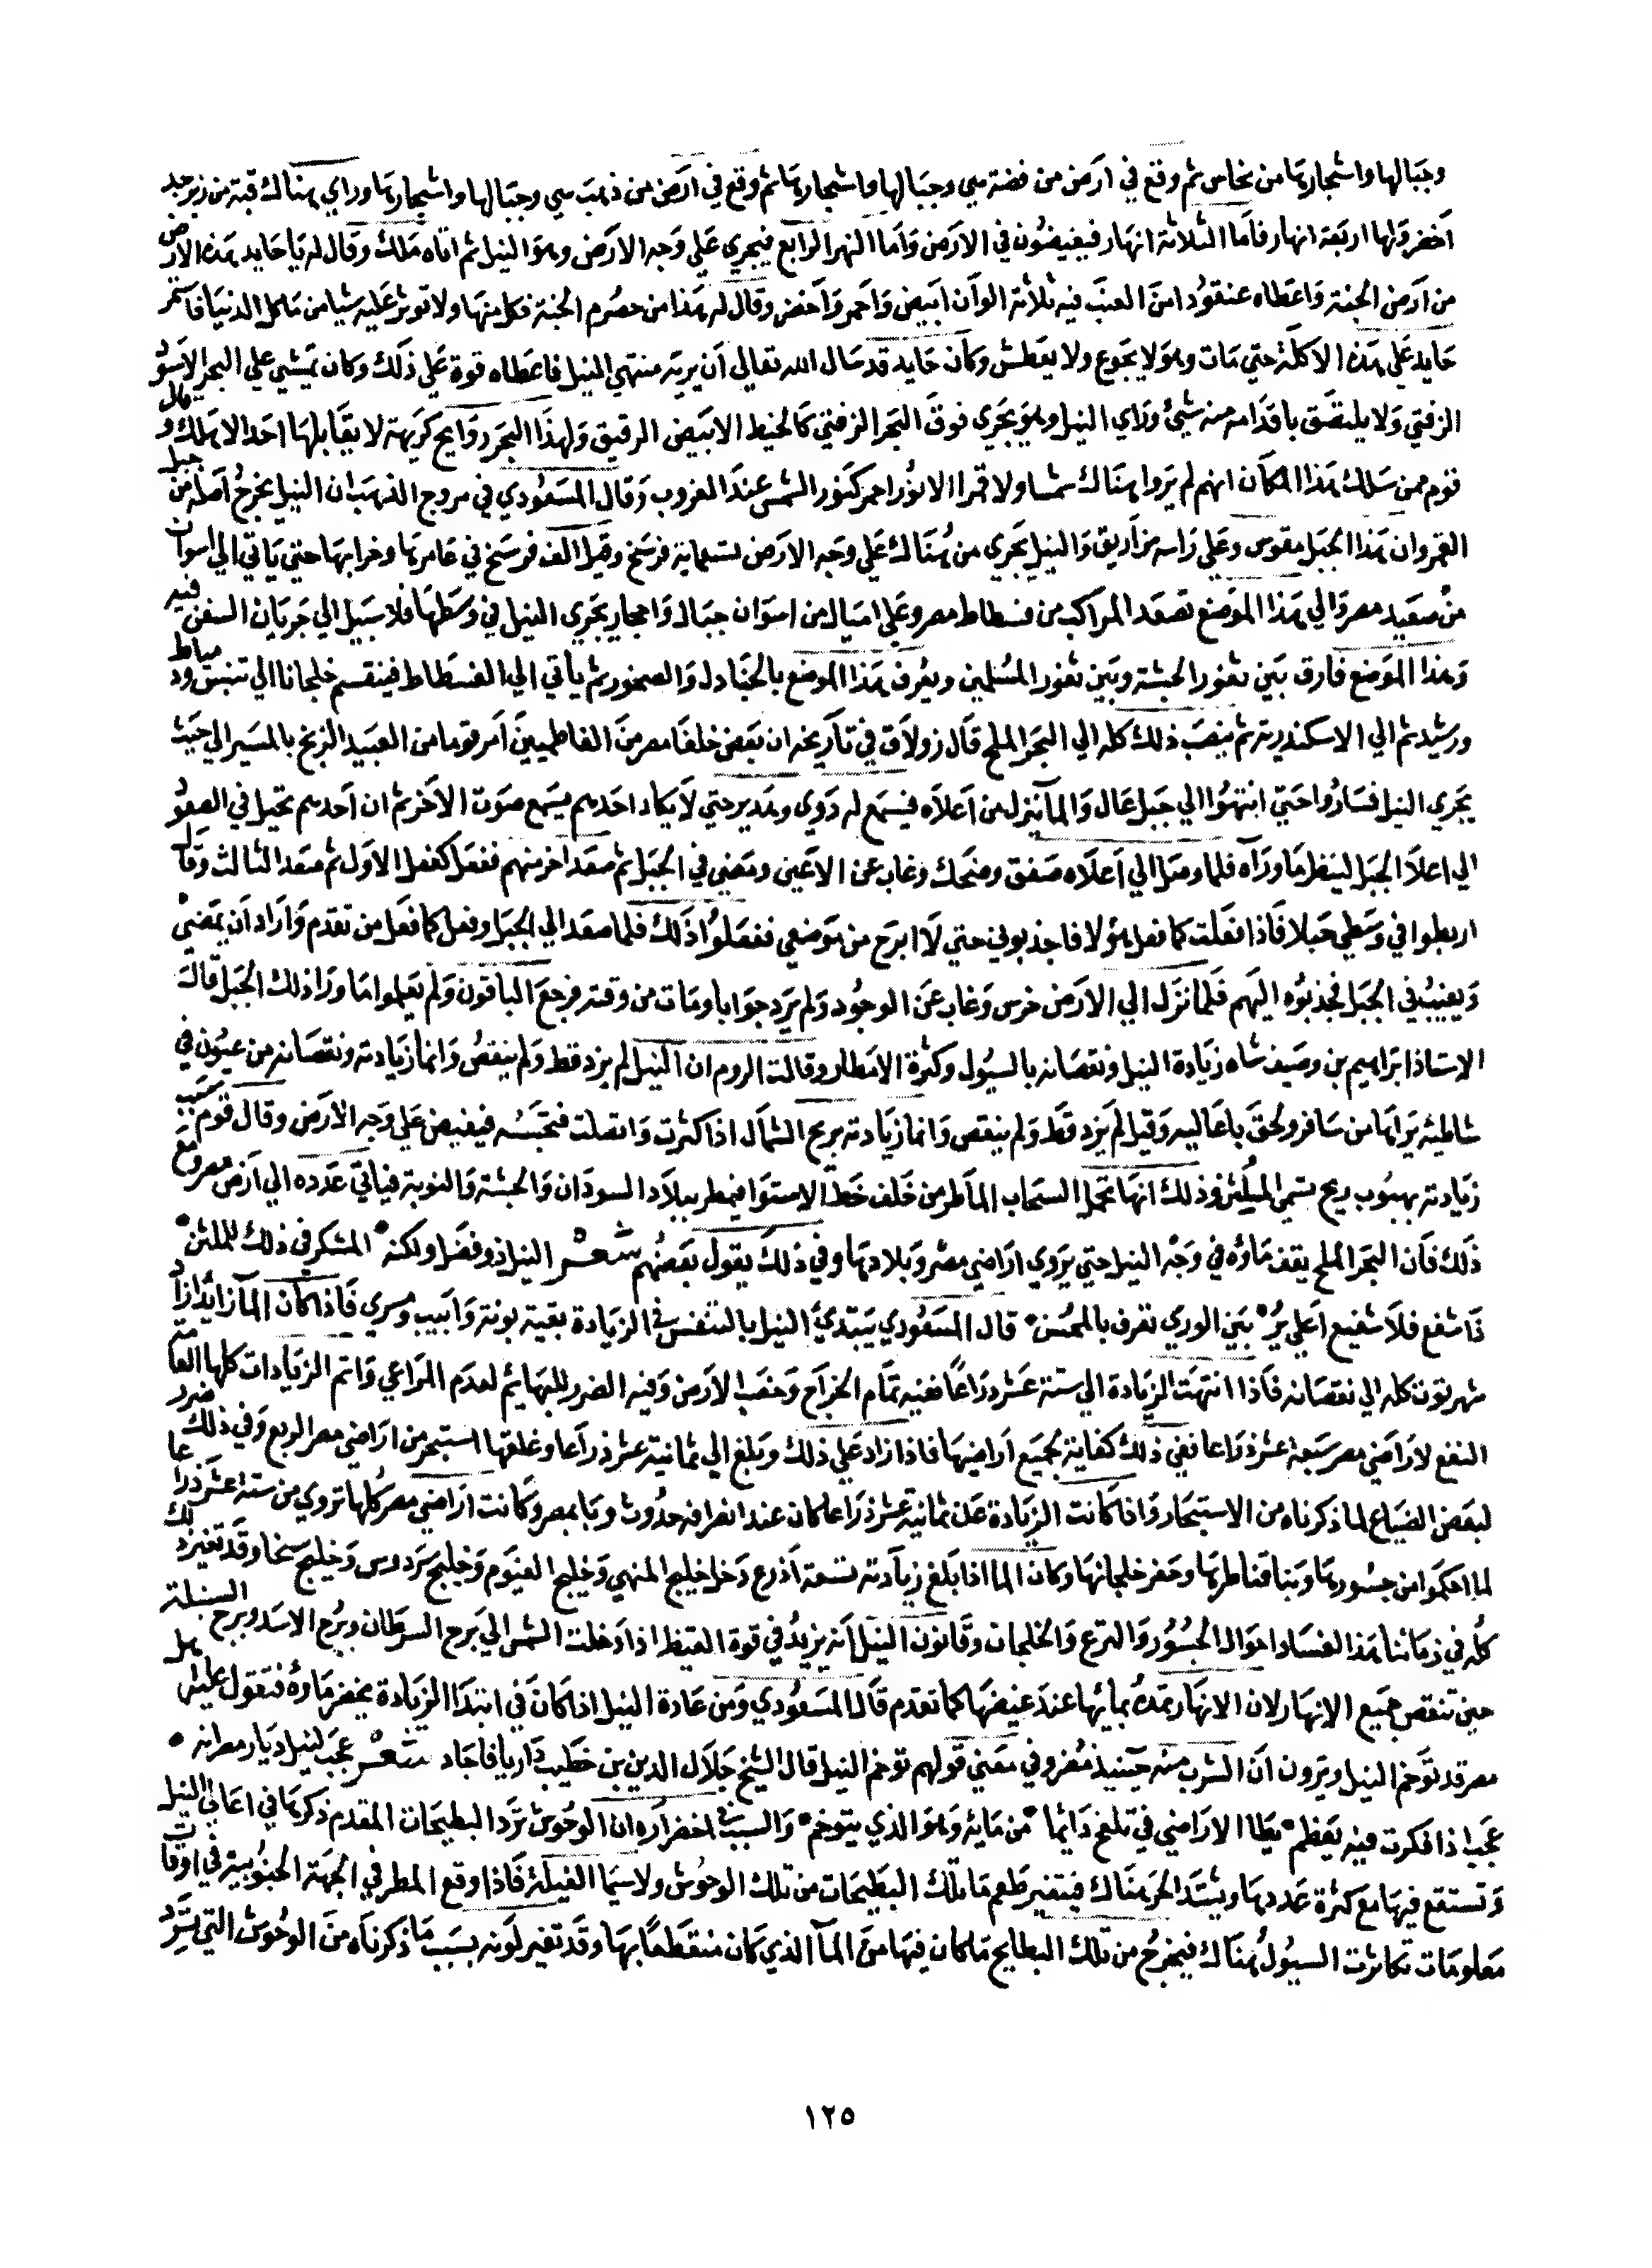 وجبالها واشجارها من نحاس ثم وقع في ارض من فضة هي وجبالها واشجارها ثم وقع في ارض من ذهب هي وجبالها واشجارها وراي هناك قبة من زبرجد
اخضر ولها اربعة انهار فاما الثلاثة انهار فيفيضون في الارض واما النهر الرابع فيجري علي وجه الارض وهو النيل ثم اتاه ملك وقال له يا حايد هذه الارض
من ارض الجنة واعطاه عنقودا من العنب فيه ثلاثة الوان ابيض واحمر واخضر وقال له هذا من حصرم الجنة فكل منها ولا توثر عليه شيا من ماكل الدنيا فاستمر
حايد علي هذه الاكلة حتي مات وهو لا يجوع ولا يعطش وكان حايد قد سال الله تعالي ان يريه منتهي النيل فاعطاه قوة علي ذلك وكان يمشي علي البحر الاسود
الزفتي ولا يلتصق باقدامه منه شئ وراي النيل وهو يجري فوق البحر الزفتي كالخيط الابيض الرقيق ولهذا البحر روايح كريهة لا يقابلها احد الا هلك وقال
قوم ممن سلك هذا المكان انهم لم يروا هناك شمسا ولا قمرا الا نورا احمر كنور الشمس عند الغروب وقال المسعودي في مروج الذهب ان النيل يخرج اصله من جبل
القمر وان هذا الجبل مقوس وعلي راسه مزاريق والنيل يجري من هناك علي وجه الارض تسعماية فرسخ وقيل الف فرسخ في عامرها وخرابها حتي ياتي الي اسوان
من صعيد مصر والي هذا الموضع تصعد المراكب من فسطاط مصر وعلي اميال من اسوان جبال واحجار يجري النيل في وسطها فلا سبيل الي جريان السفن فيه
وهذا الموضع فارق بين ثغور الحبشة وبين ثغور المسلمين ويعرف هذا الموضع بالجنادل والصخور ثم ياتي الي الفسطاط فينقسم خلجانا الي تنيس ودمياط
ورشيد ثم الي الاسكندرية ثم ينصب ذلك كله الي البحر الملح قال زولاق في تاريخه ان بعض خلفا مصر من الفاطميين امر قوما من العبيد الزنج بالمسير الي حيث
يجري النيل فساروا حتي انتهوا الي جبل عال والمآ ينزل من اعلاه فيسمع له دوي وهدير حتي لا يكاد احدهم يسمع صوت الاخر ثم ان احدهم تحيل في الصعود
الي اعلا الجبل لينظر ما ورآه فلما وصل الي اعلاه صفق وضحك وغاب عن الاعين ومضي في الجبل ثم صعد اخر منهم ففعل كفعل الاول ثم صعد الثالث وقال
اربطوا في وسطي حبلا فاذا فعلت كما فعل هؤلا فاجذبوني حتي لا ابرح من موضعي ففعلوا ذلك فلما صعد الي الجبل وفعل كما فعل من تقدم واراد ان يمضي
ويغيب في الجبل فجذبوه اليهم فلما نزل الي الارض خرس وغاب عن الوجود ولم يرد جوابا ومات من وقته فرجع الباقون ولم يعلموا ما ورا ذلك الجبل قال
الاستاذ ابراهيم بن وصيف شاه زيادة النيل ونقصانه بالسيول وكثرة الامطار وقالت الروم ان النيل لم يزد قط ولم ينقص وانما زيادته ونقصانه من عيون في
شاطيه يراها من سافر ولحق باعاليه وقيل لم يزد قط ولم ينقص وانما زيادته بريح الشمال اذا كثرت واتصلت فتحبسه فيفيض علي وجه الارض وقال قوم سبب
زيادته بهبوب ريح تسمي الملثن وذلك انها تحمل السحاب الماطر من خلف خط الاستوا فيمطر ببلاد السودان والحبشة والنوبة فياتي عدده الي ارض مصر ومع
ذلك فان البحر الملح يقف ماؤه في وجه النيل حتي يروي اراضي مصر وبلادها وفي ذلك يقول بعضهم شعر النيل ذو فضل ولكنه * الشكر في ذلك للملثن *
ذا شفع فلا شفيع اعلي بر * بين الوري تعرف بالمحسن * قال المسعودي يبتدئ النيل بالتنفس في الزيادة بقية بونة وابيب ومسري فاذا كان المآ زايدا زاد
شهر توت كله الي نقصانه فاذا انتهت الزيادة الي ستة عشر ذراعا ففيه تمام الخراج وخصب الارض وفيه الضرر للبهايم لعدم المراعي واتم الزيادات كلها العامة
النفع لاراضي مصر سبعة عشر ذراعا نفي ذلك كفاية لجميع اراضيها فاذا زاد علي ذلك وبلغ الي ثمانية عشر ذراعا وغلقها استبحر من اراضي مصر الربع وفي ذلك ضرر
لبعض الضياع لما ذكرناه من الاستبحار واذا كانت الزيادة علي ثمانية عشر ذراعا كان عند انصرافه حدوث وبا بمصر وكانت اراضي مصر كلها تروي من ستة عشر ذراعا
لما احكموا من جسورها وبنا قناطرها وحفر خلجانها وكان الما اذا بلغ زيادته تسعة اذرع دخل خليج المنهي وخليج الفيوم وخليج سردوس وخليج سخا وقد تغير ذلك
كله في زماننا هذا لفساد احوال الجسور والترع والخلجان وقانون النيل انه يزيد في قوة القيظ اذا دخلت الشمس الي برج السرطان وبرج الاسد وبرج السنبلة
حين تنقص جميع الانهار لان الانهار تمده بمائها عند غيضها كما تقدم قال المسعودي ومن عادة النيل اذا كان في ابتدا الزيادة يخضر ماؤه فتقول عليه اهل
مصر قد توخم النيل ويرون ان الشرب منه حينيذ مضر وفي معني قولهم توخم النيل قال الشيخ جلال الدين بن خطيب داريا فاجاد شعر عجب لنيل ديار مصر انه *
عجب اذا فكرت فيه يعظم * يطا الاراضي في تلغخ دائما * من مائه وهو الذي يتوخم * والسبب في اخضراره ان الوحوش ترد البطيحات المقدم ذكرها في اعالي النيل
وتستقع فيها مع كثرة عددها ويشتد الحر هناك فيتغير طعم ما تلك البطيحات من تلك الوحوش ولا سيما الفيلة فاذا وقع المطر في الجهة الجنوبية في اوقات
معلومات تكاثرت السيول هناك فيخرج من تلك البطايح ما كان فيها من المآ الذي كان منقطعا بها وقد تغير لونه بسبب ما ذكرناه من الوحوش التي ترد
١٢٥